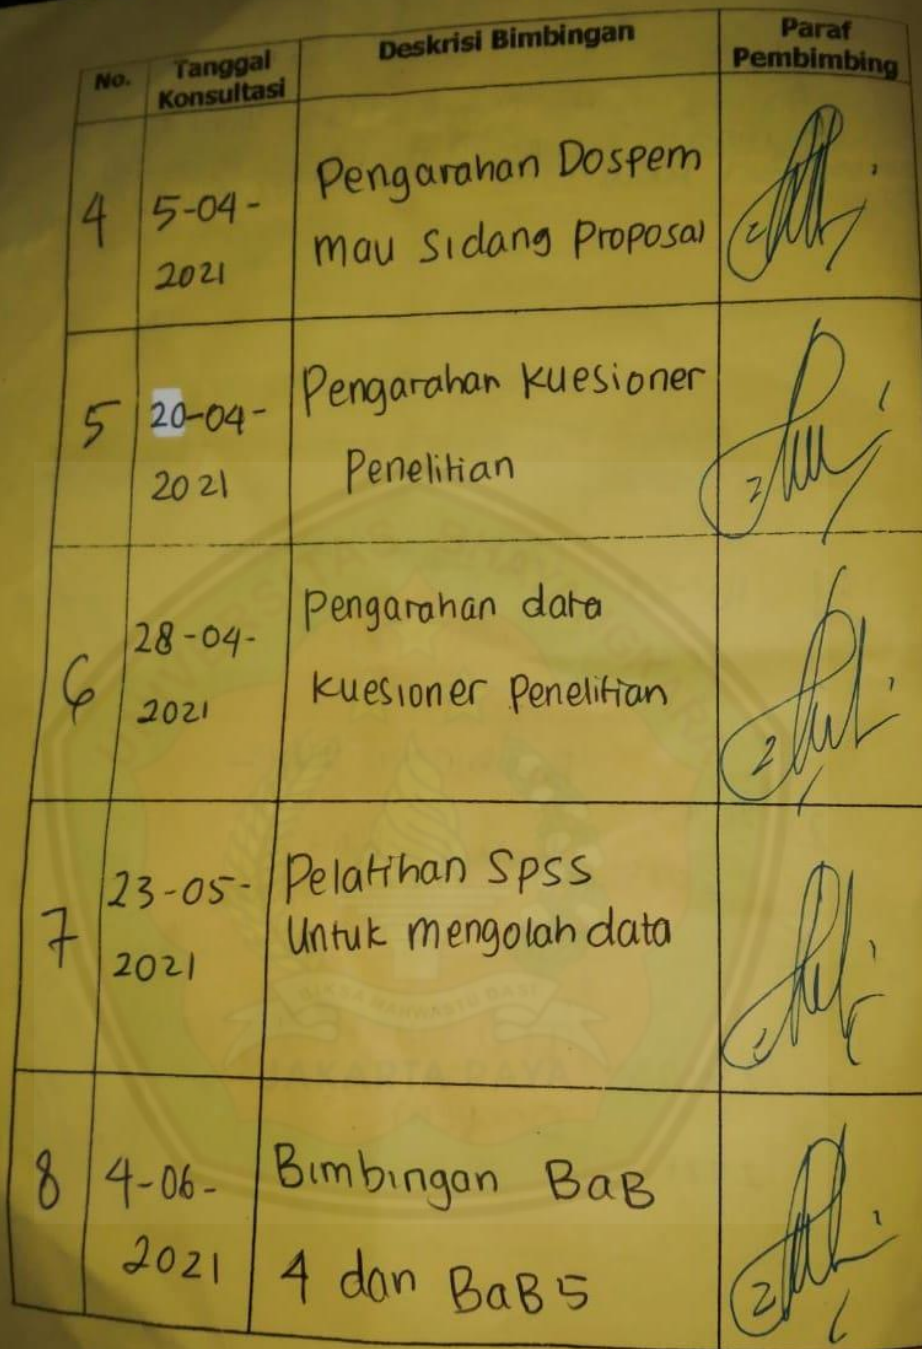 No. Tanggal Konsultasi Deskrisi Bimbingan Paraf Pembimbing
4 5-04-2021 Pengarahan Dospem
mau Sidang Proposal
5 20-04-2021 Pengarahan Kuesioner
Penelitian
6 28-04-2021 Pengarahan data
Kuesioner Penelitian
7 23-05-2021 Pelatihan SPSS
Untuk mengolah data
8 4-06-2021 Bimbingan BaB
4 dan BaB 5
JAKARTA RAYA